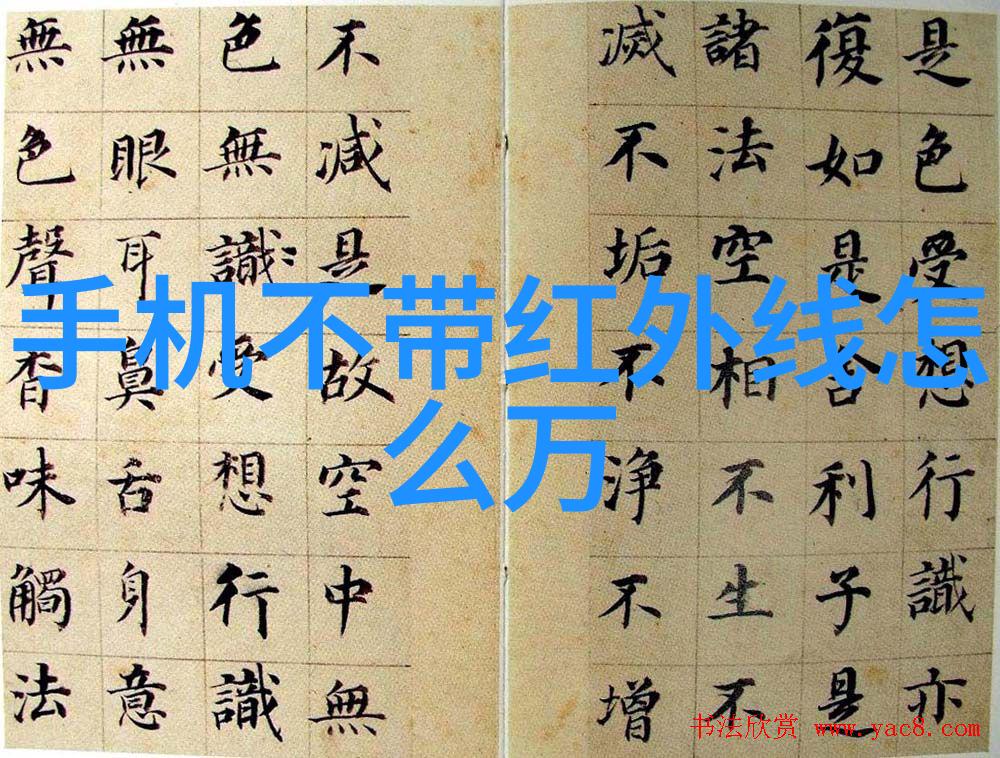 手机不带红外线怎
么万
是色受想行識亦
復如是舍利子是
諸法空相不生不
滅不垢不淨不增
不減是故空中無
色無識受想行識
無眼耳鼻舌身意
無色聲香味觸法
书法欣赏 www.yac8.com